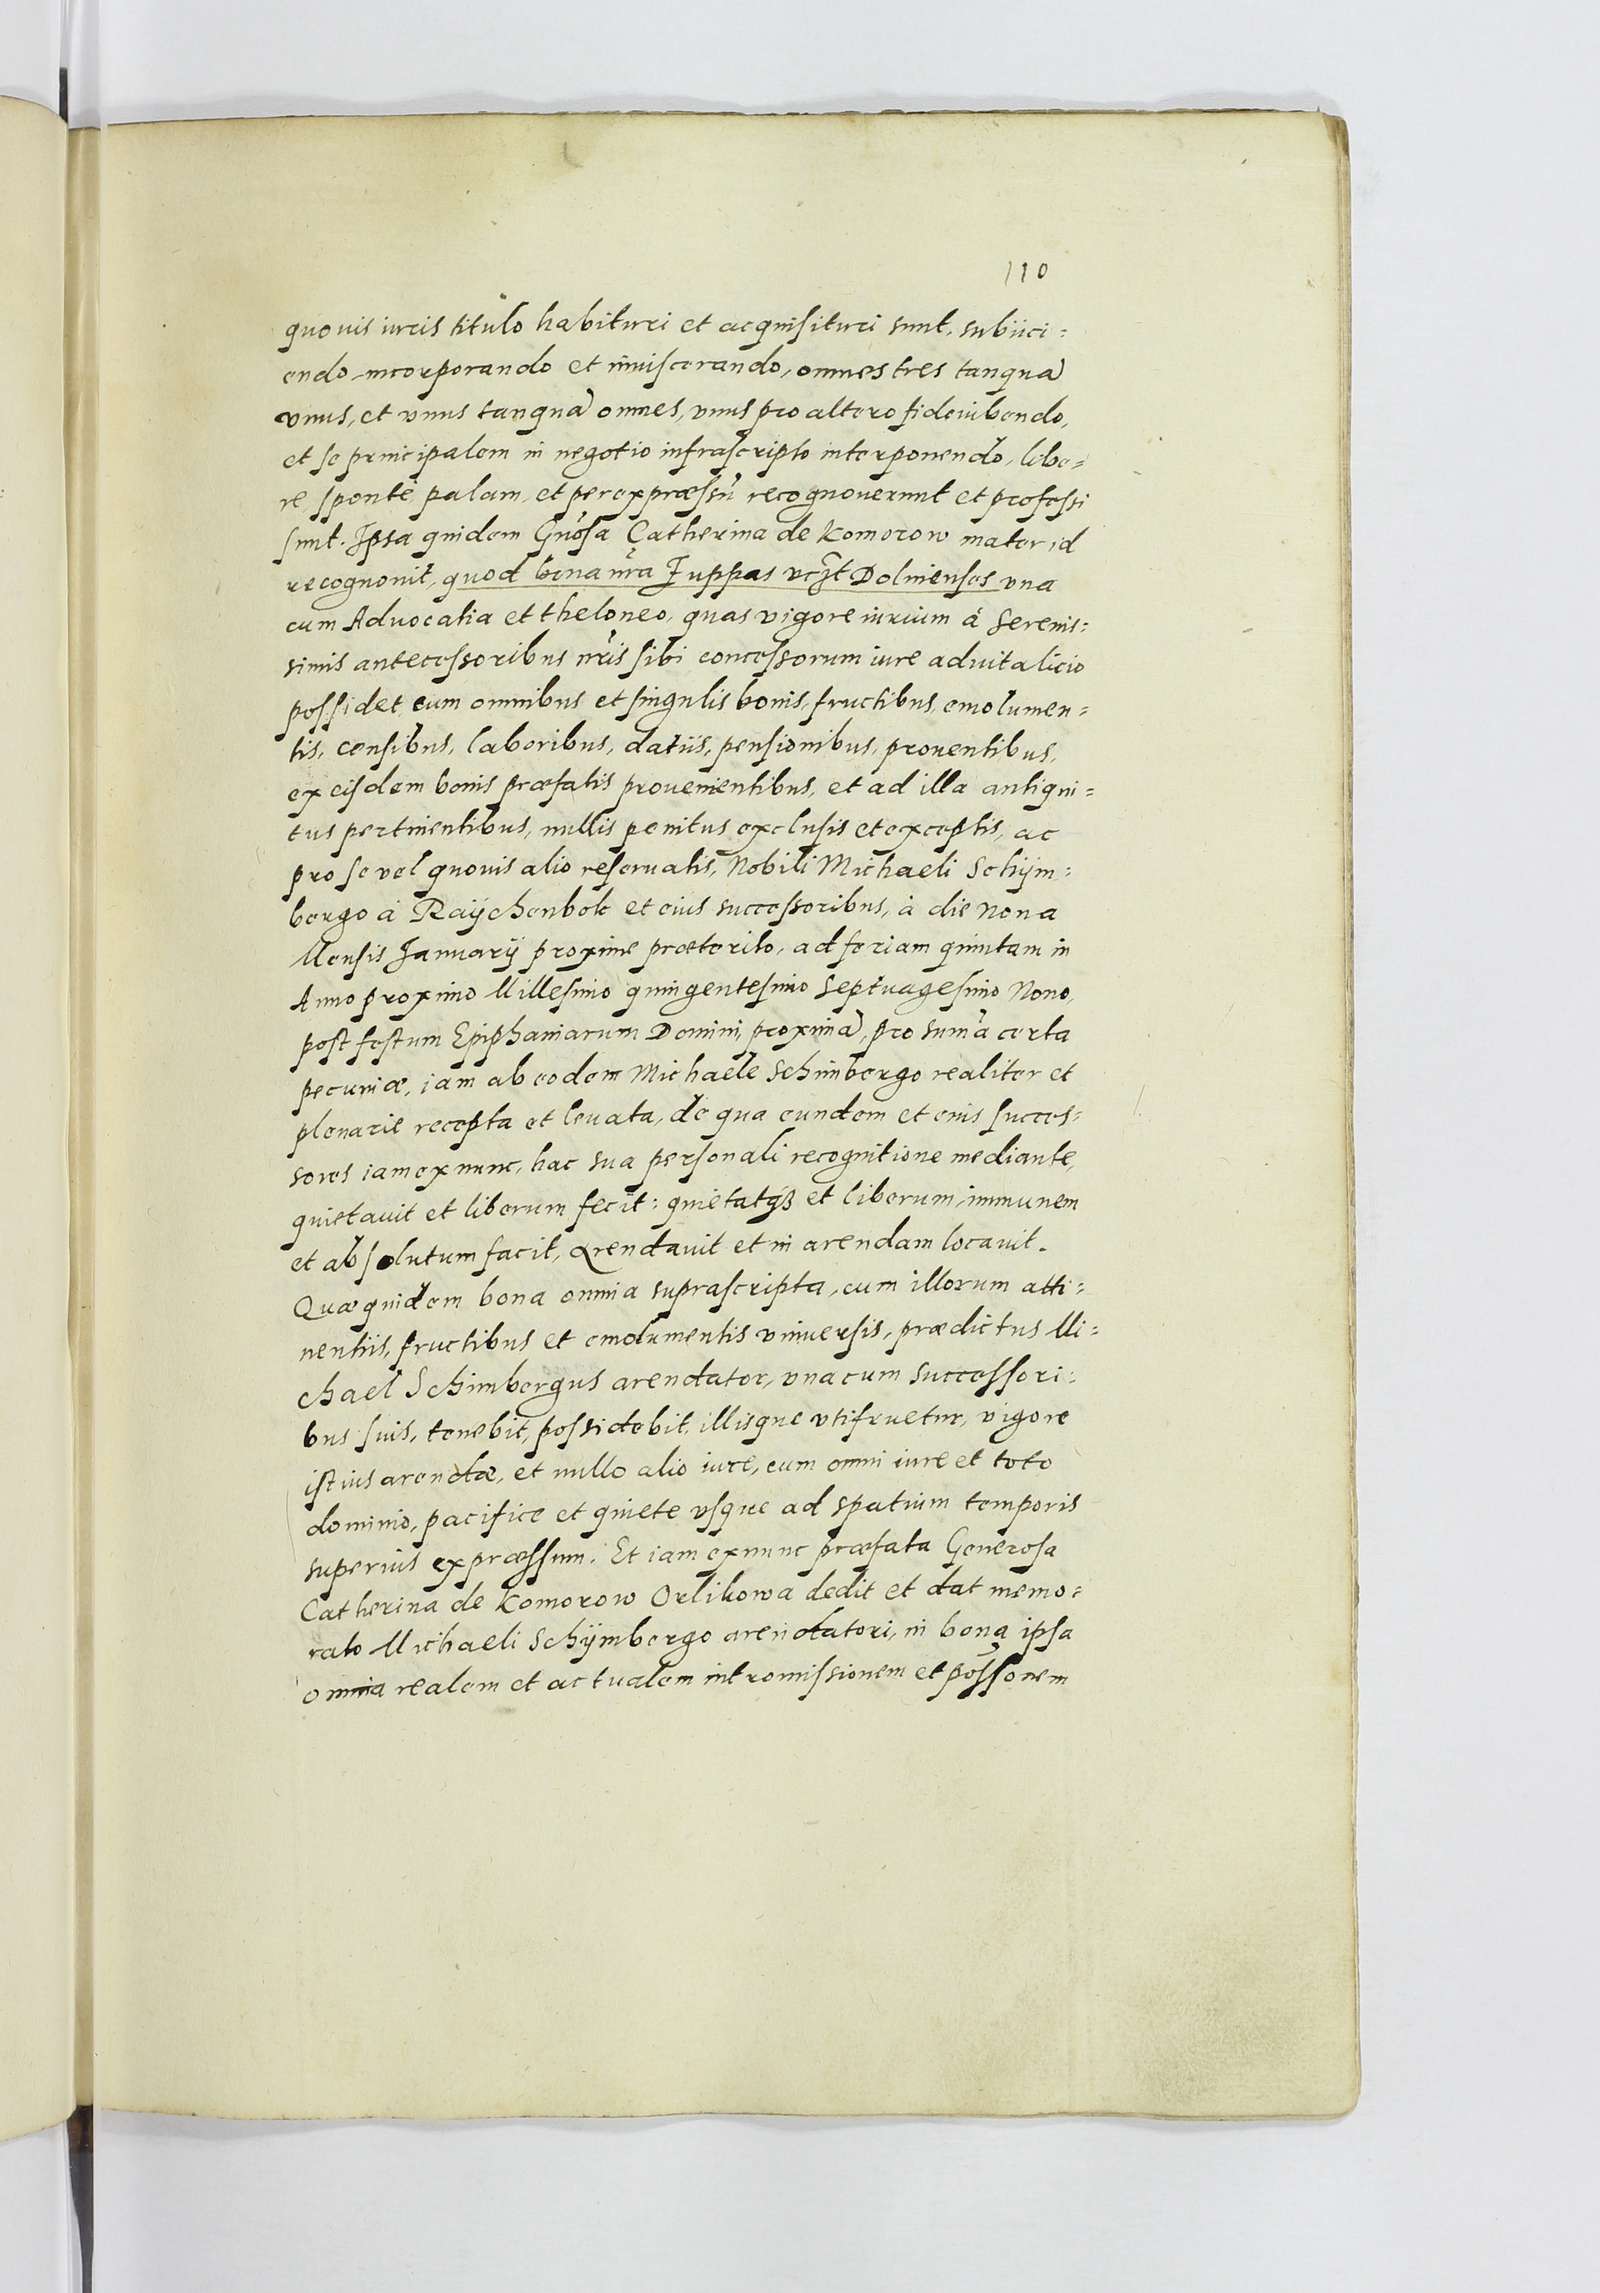 110
quovis iuris titulo habituri et acquisituri sunt, subiici=
endo incorporando et inviscerando, omnes tres tanquã
vnus, et vnus tanquã omnes, vnus pro altero fideiubendo,
et se principalem in negotio infrascripto interponendo, libe=
re sponte palam, et per expræssũ recognoverunt et professi
sunt. Ipsa quidem Gnõsa Catherina de Komorow mater id
recognouit, quod bona nr̃a Juppas vczt Dolnienses vna
cum Advocatia et theloneo, quas vigore iurium à Serenis:
simis antecessoribus nr̃is sibi concessorum iure aduitalicio
possidet, cum omnibus et singulis bonis, fructibus, emolumen=
tis, censibus, laboribus, datiis, pensionibus, prouentibus,
ex eisdem bonis præfatis prouenientibus, et ad illa antiqui=
tus pertinentibus, nullis penitus exclusis et exceptis, ac
pro se vel quouis alio reseruatis, Nobili Michaeli Schÿm=
bergo à Raÿchenbok et eius successoribus, à die Nona
Mensis Januarÿ proxime præterito, ad feriam quintam in
Anno proximo Millesimo quingentesimo Septuagesimo Nono,
post festum Epiphaniarum Domini, proximã, pro sum̃a certa
pecuniæ, iam ab eodem Michaele Schimbergo realiter et
plenarie recepta et leuata, de qua eundem et eius succes=
sores iam ex nunc, hac sua personali recognitione mediante,
quietauit et liberum fecit: quietatqȝ et liberum, immunem
et absolutum facit, Arendauit et in arendam locavit.
Quæ quidem bona omnia suprascripta, cum illorum atti=
nentiis, fructibus et emolumentis vniuersis, prædictus Mi=
chael Schimbergus arendator, vna cum successori:
bus suis, tenebit, possidebit, illisque vtifruetur, vigore
istius arendæ, et nullo alio iure, cum omni iure et toto
dominio, pacifice et quiete vsque ad spatium temporis
superius expræssum. Et iam ex nunc præfata Generosa
Catherina de Komorow Orlikowa dedit et dat memo=
rato Michaeli Schÿmbergo arendatori, in bona ipsa
omnia realem et actualem intromissionem et poss̃onem